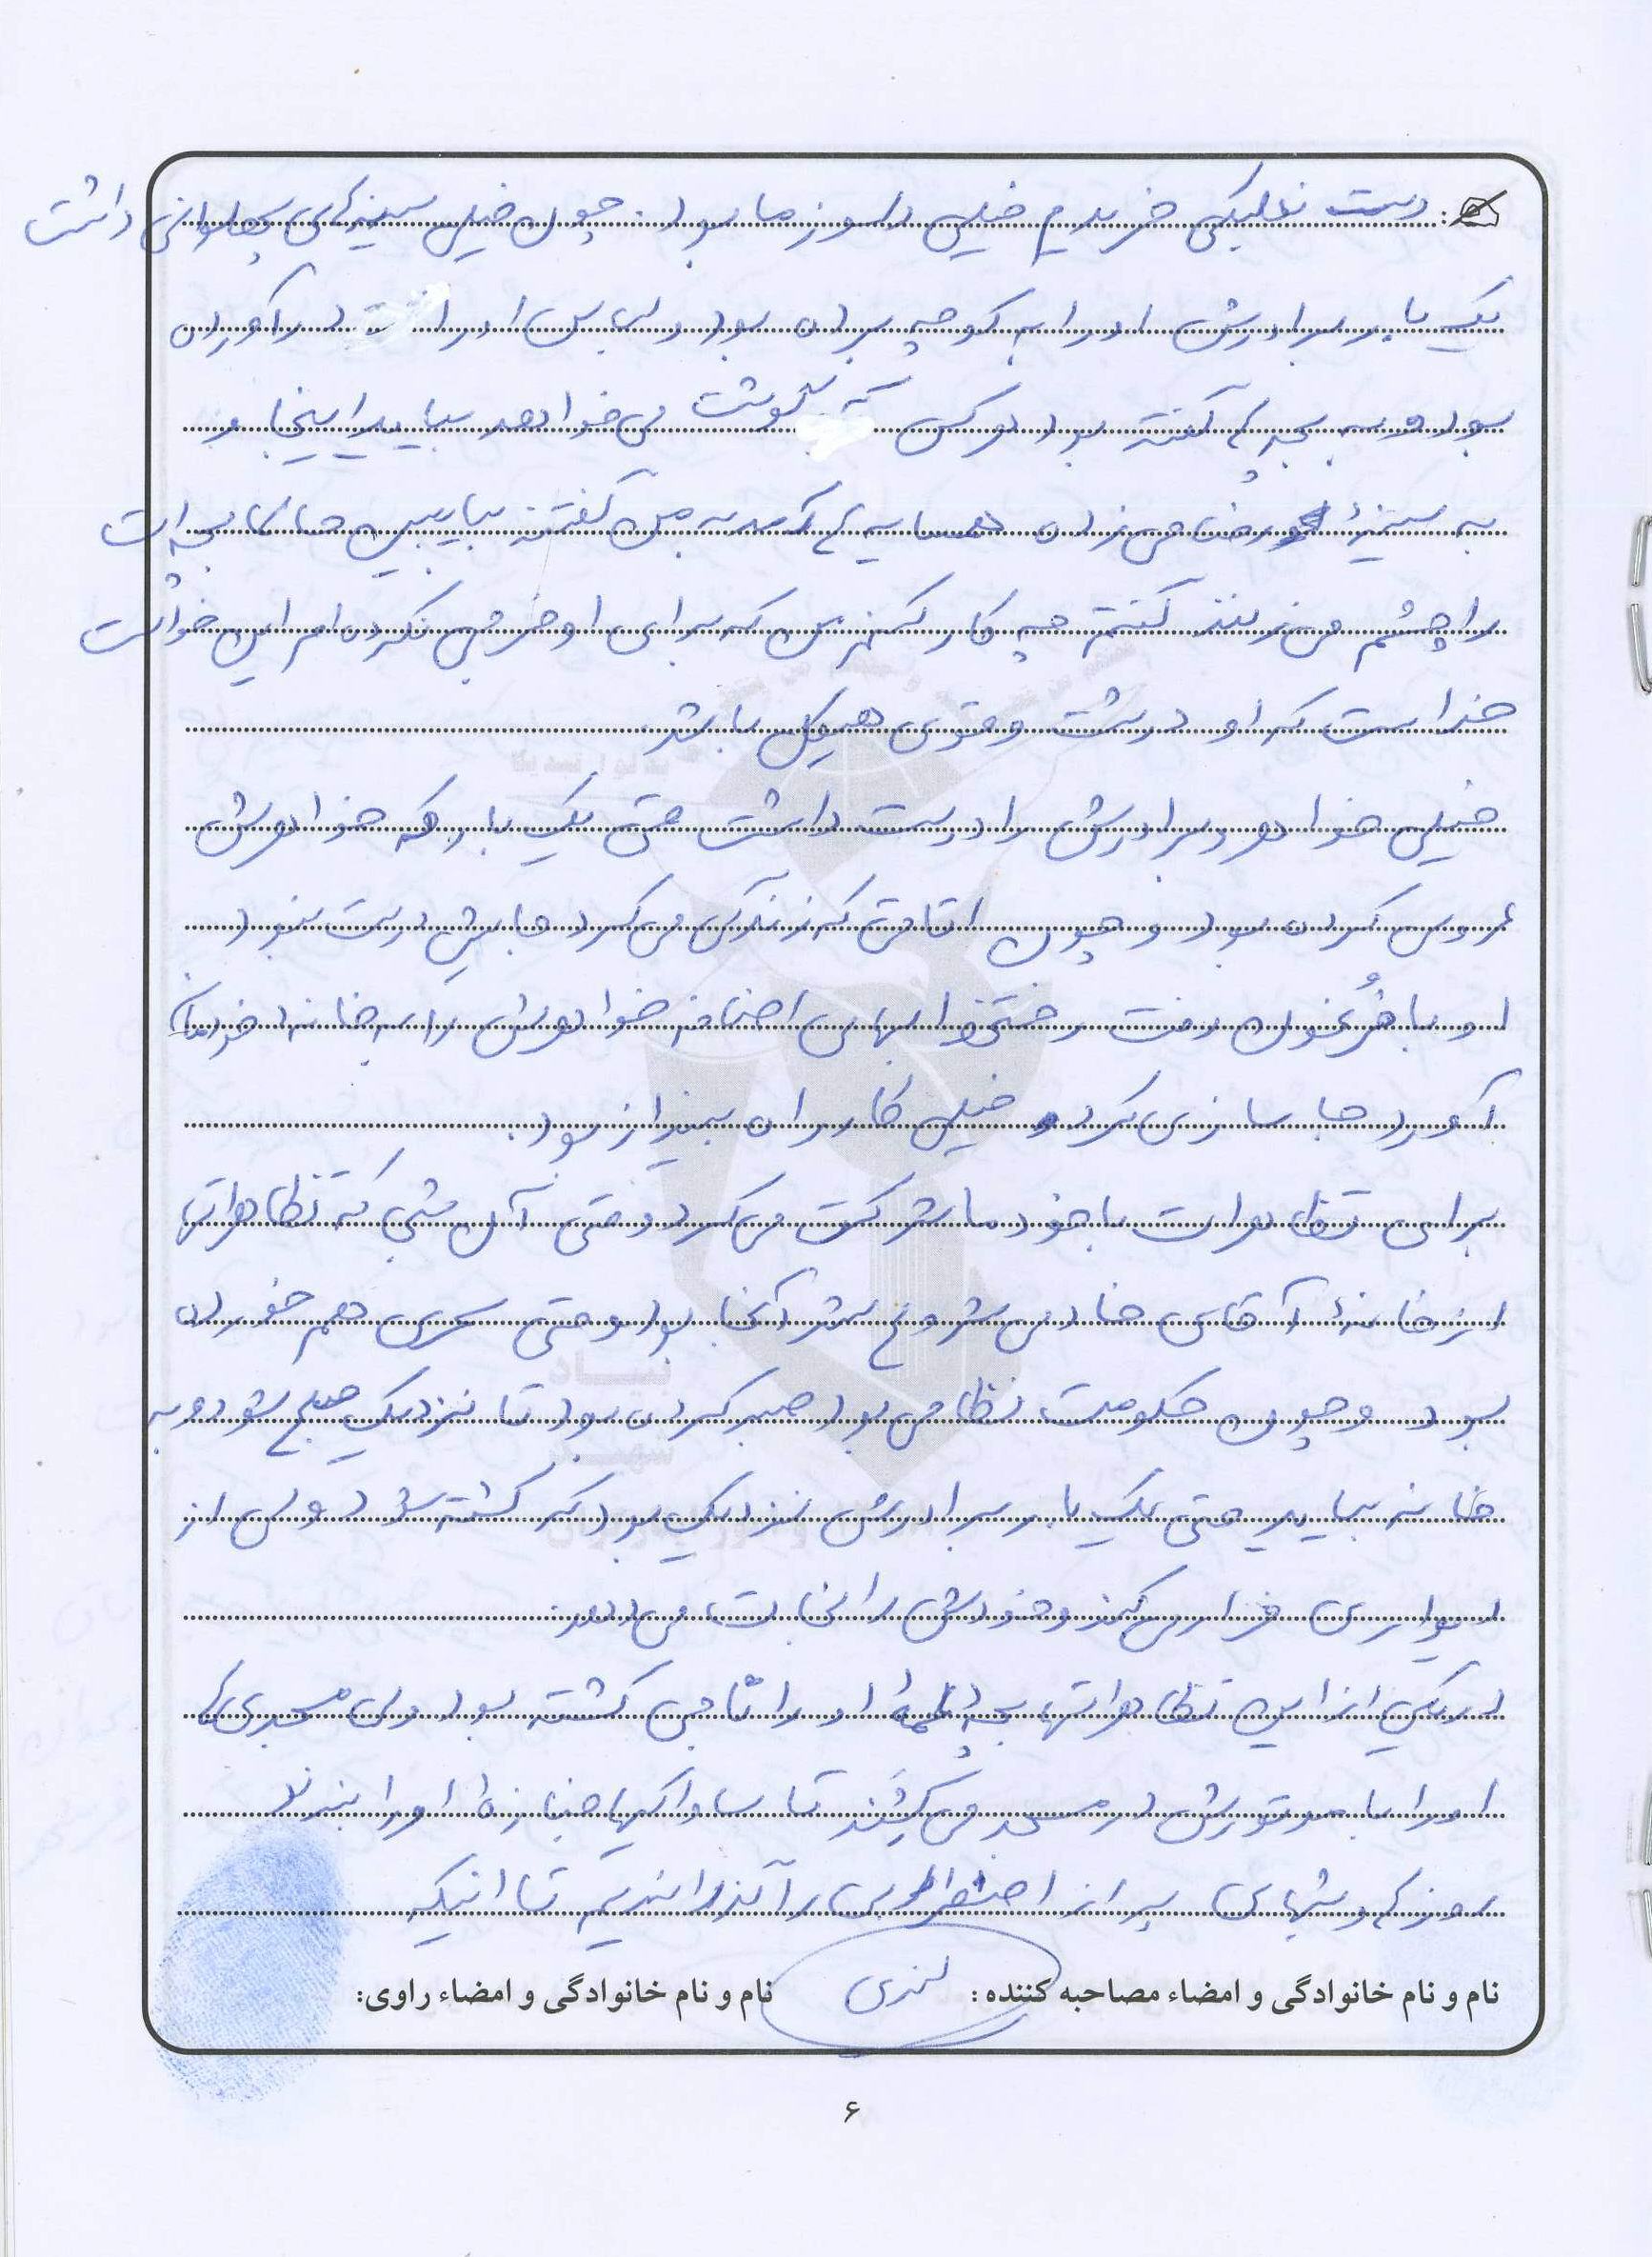 دست نعلبکی خریدم خیلی دلسوز ما بود. چون خیلی سینه‌ای پهلوانی داشت
یک بار برادرش او را به کوچه برده بود و لباس او را در آورده
بود و به بچه‌ها گفته بود هر کس که گوشت می‌خواهد بیاید اینجا و
به سینۀ رضا می‌زده همسایه‌ها آمد به من گفتند بیا ببین حالا بچه‌ات
را چشم می‌زنند گفتم چه کار کنم من که برای او خرجی نکرده‌ام این خواست
خداست که او درشت و قوی هیکل باشد.
خیلی خواهر و برادرش را دوست داشت حتی یک بار که خواهرش
عروسی کرده بود و چون اتاقی که زندگی می‌کرد جایش درست نبود
او با فُرغون رفت رختخوابهای اضافه خواهرش را به خانه خودمان
آورد جا سازی کرد خیلی کار راه بینداز بود.
برای تظاهرات با خود ما شرکت می‌کرد و حتی آن شبی که تظاهراتها
از خانۀ آقای خادمی شروع شد آنجا بود و حتی سحری هم خورده
بود و چون حکومت نظامی بود صبر کرده بود تا نزدیک صبح شود و به
خانه بیاید حتی یک بار برادرش نزدیک بود که کشته شود ولی از
دیواری فرار می‌کند و خودش را نجات می‌دهد.
در یکی از این تظاهراتها بچه عمۀ او را ناجی کشته بود ولی مسجدی‌ها
او را با موتورش در مسجد می‌کِشَند تا ساواکیها جنازۀ او را نبرند
روزها و شبهای پر از اضطرابی را گذراندیم تا اینکه
نام و نام خانوادگی و امضاء مصاحبه کننده : نام و نام خانوادگی و امضاء راوی:
۶